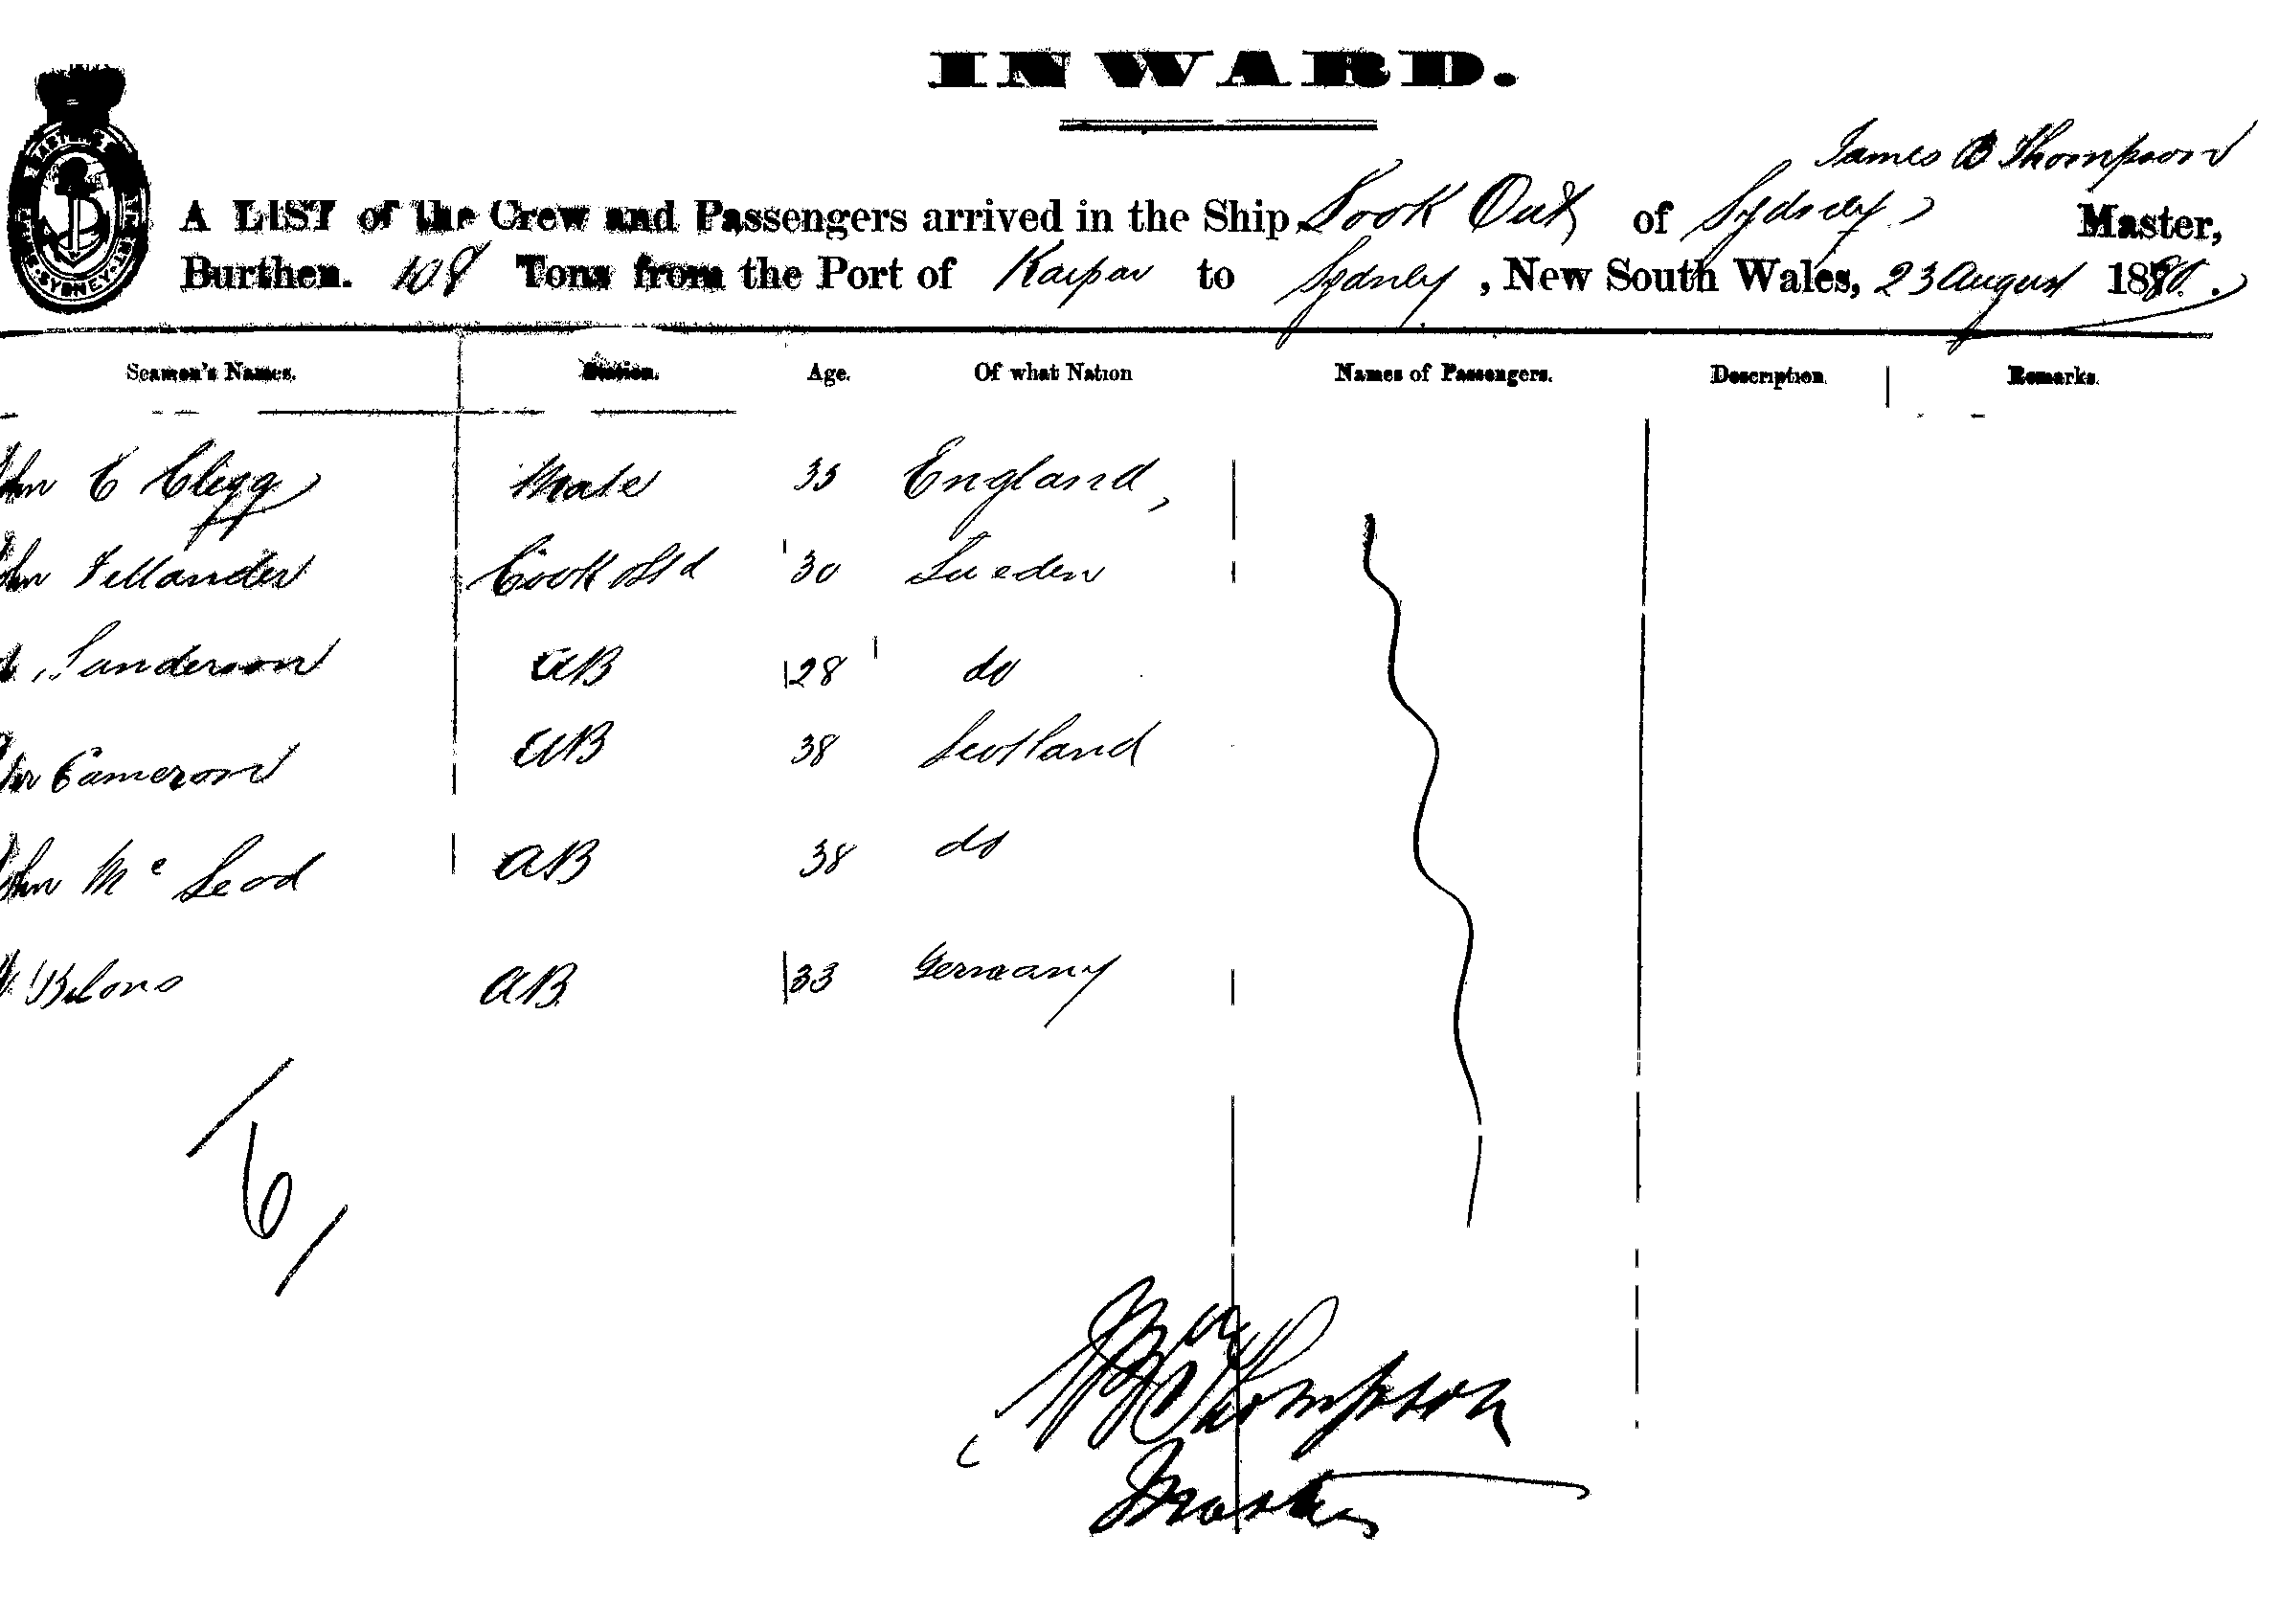 INWARD.
James B Thompson
A LIST of the Crew and Passengers arrived in the Ship Look Out of Sydney Master,
Burthen. 108 Tons from the Port of to Sydney, New South Wales, 23 August 1880.
Seamen's Names. Station. Age. Of what Nation Names of Passengers. Description Remarks.
C Clegg Mate 35 England,
Fellander Cook & Std 30 Sueden
Sanderson AB 28 do
Cameron AB 38 Scotland
Mc Leod AB 38 do
AB 33 Germany
/6/
Thompson
Master